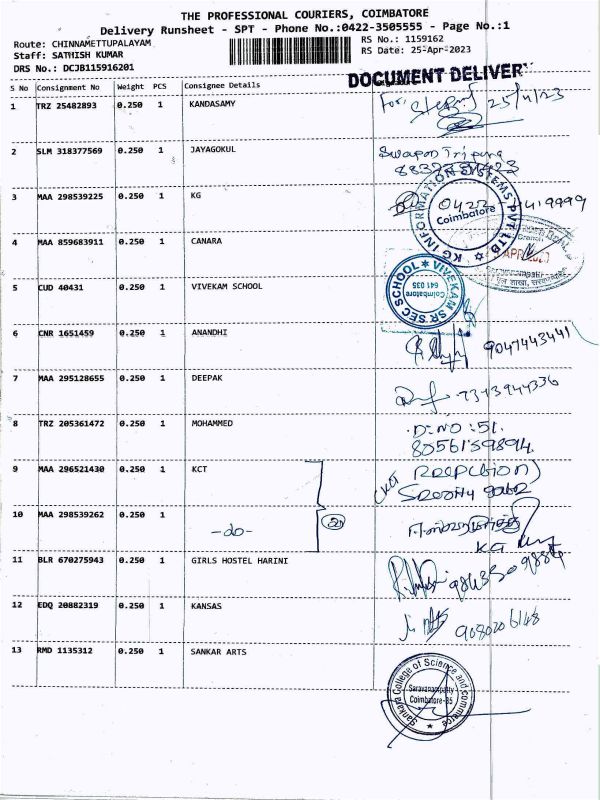 THE PROFESSIONAL COURIERS, COIMBATORE
Delivery Runsheet - SPT - Phone No.:0422-3505555 - Page No.:1
Route: CHINNAMETTUPALAYAM
Staff: SATHISH KUMAR
DRS No.: DCJB115916201
RS No.: 1159162
RS Date: 25-Apr-2023
DOCUMENT DELIVERY
S No Consignment No Weight PCS Consignee Details
1 TRZ 25482893 0.250 1 KANDASAMY
For 25/4/23
2 SLM 318377569 0.250 1 JAYAGOKUL
Swapon Tripura
3 MAA 298539225 0.250 1 KG
KG INFORMATION SYSTEMS PVT. LTD
Coimbatore
4 MAA 859683911 0.250 1 CANARA
5 CUD 40431 0.250 1 VIVEKAM SCHOOL
VIVEKAM SR SEC SCHOOL
Coimbatore
641 035
6 CNR 1651459 0.250 1 ANANDHI
9047443441
7 MAA 295128655 0.250 1 DEEPAK
7373944336
8 TRZ 205361472 0.250 1 MOHAMMED
D.NO:51.
8056159894
9 MAA 296521430 0.250 1 KCT
10 MAA 298539262 0.250 1 -do-
KG
11 BLR 670275943 0.250 1 GIRLS HOSTEL HARINI
12 EDQ 20882319 0.250 1 KANSAS
9080206148
13 RMD 1135312 0.250 1 SANKAR ARTS
Sankara College of Science and commerce
Saravanampatty
Coimbatore-35